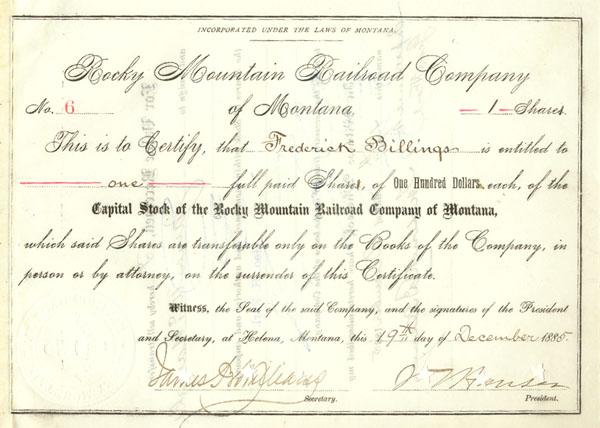 INCORPORATED UNDER THE LAWS OF MONTANA.
Rocky Mountain Railroad Company
No. 6 of Montana, 1 Shares.
This is to Certify, that Frederick Billings is entitled to
one full paid Shares, of One Hundred Dollars each, of the
Capital Stock of the Rocky Mountain Railroad Company of Montana,
which said Shares are transferable only on the Books of the Company, in
person or by attorney, on the surrender of this Certificate.
Witness, the Seal of the said Company, and the signatures of the President
and Secretary, at Helena, Montana, this 19th day of December 1885.
James
Secretary. President.